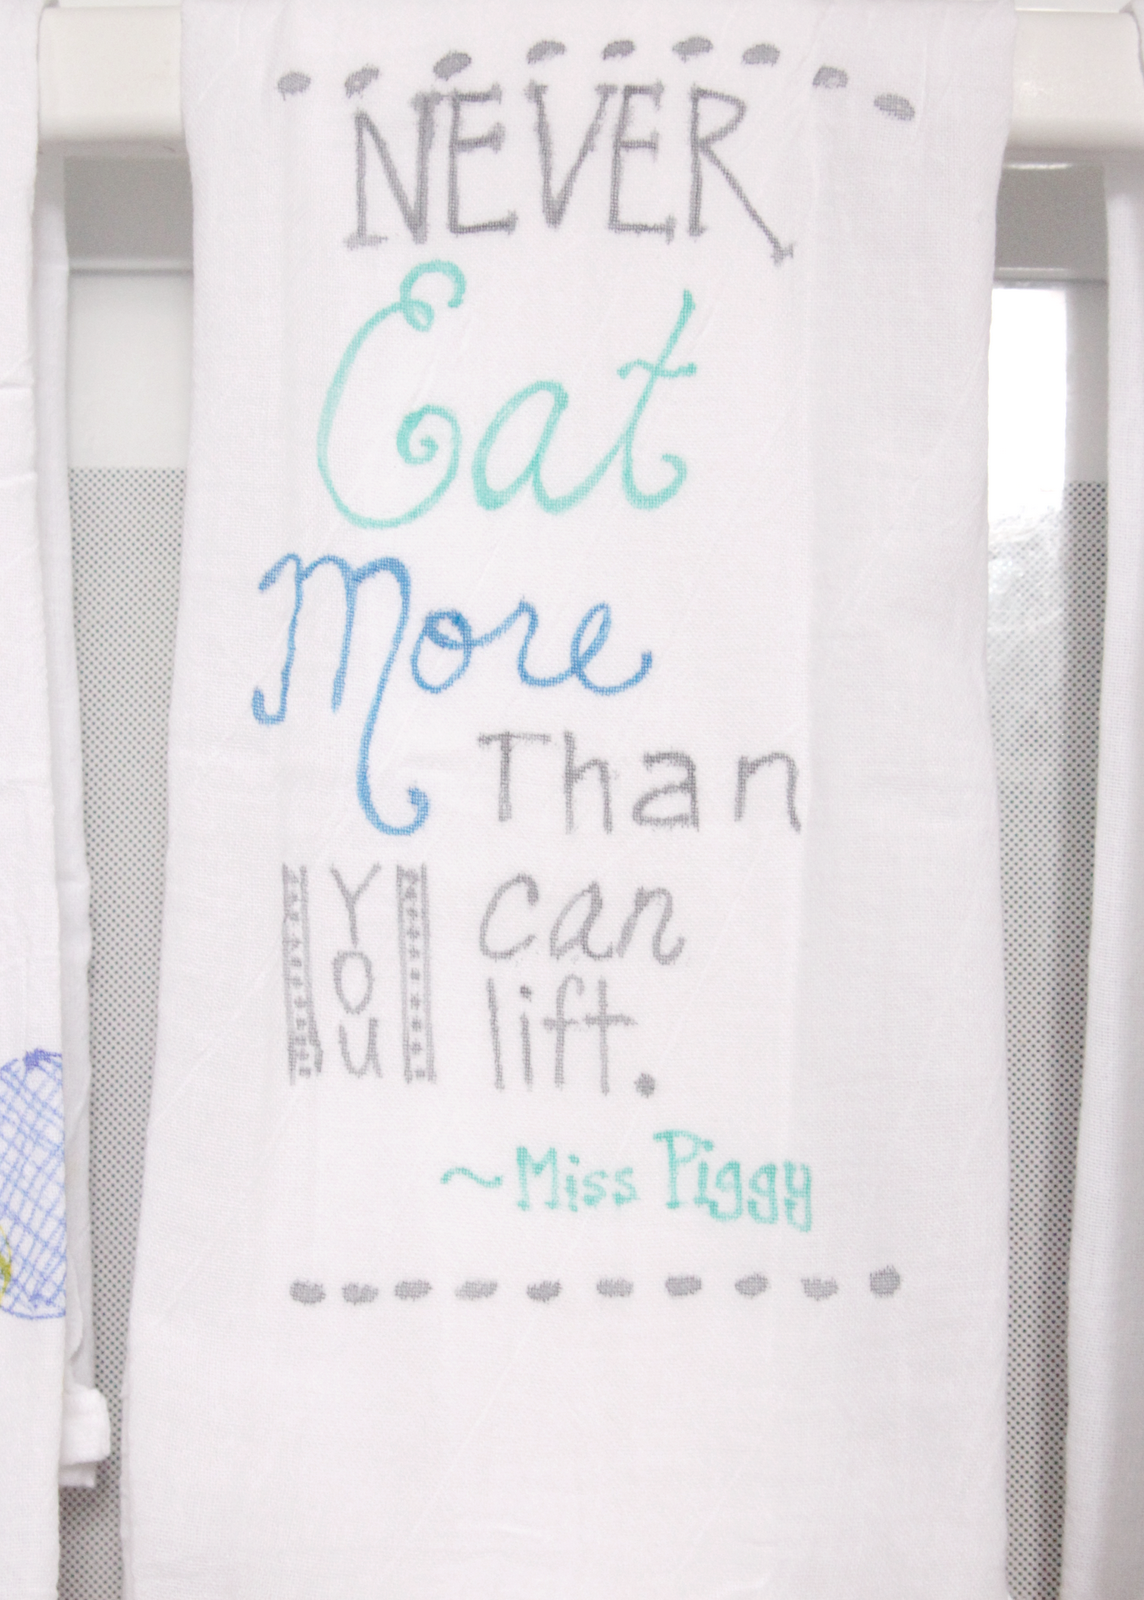 NEVER
Eat
More
Than
You can
lift.
~Miss Piggy